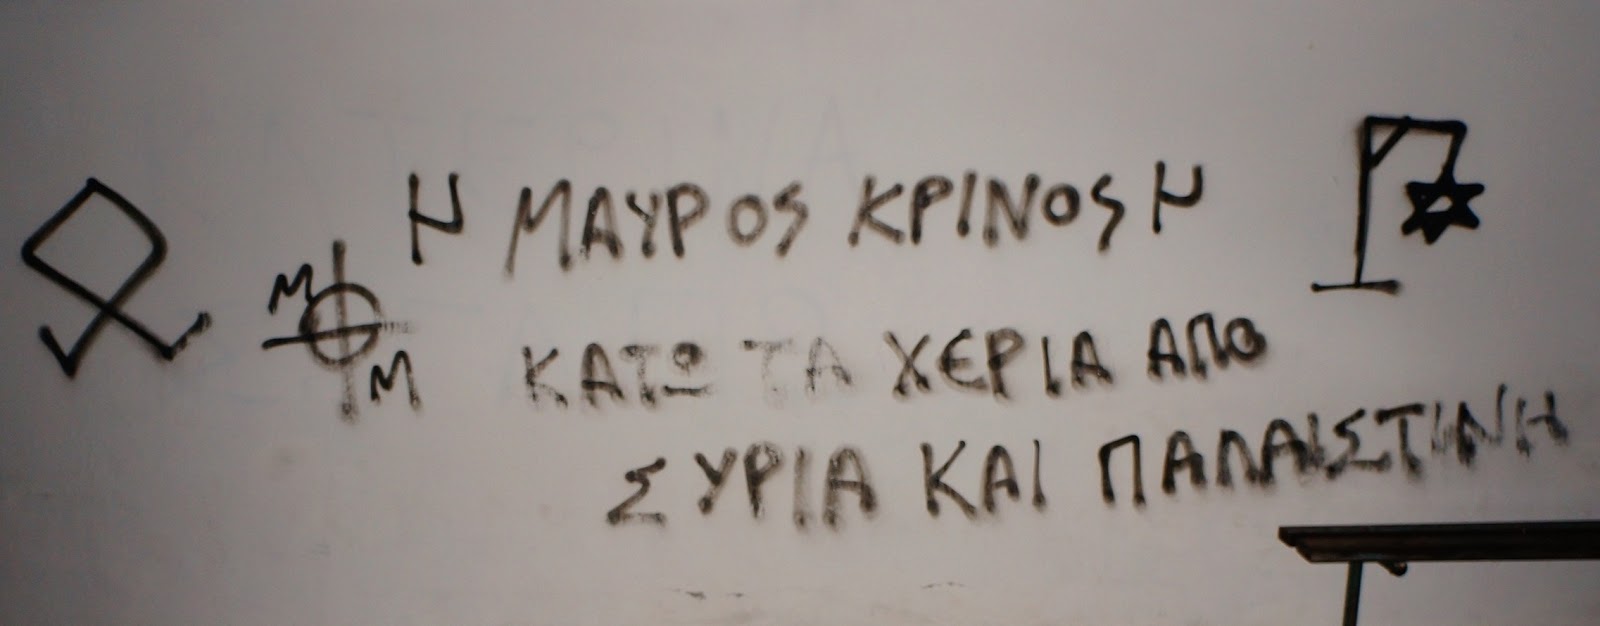 И ΜΑΥΡΟς ΚΡΙΝΟς И
Μ
Μ
ΚΑΤΩ ΤΑ ΧΕΡΙΑ ΑΠΟ
ΣΥΡΙΑ ΚΑΙ ΠΑΛΑΙΣΤΙΝΗ